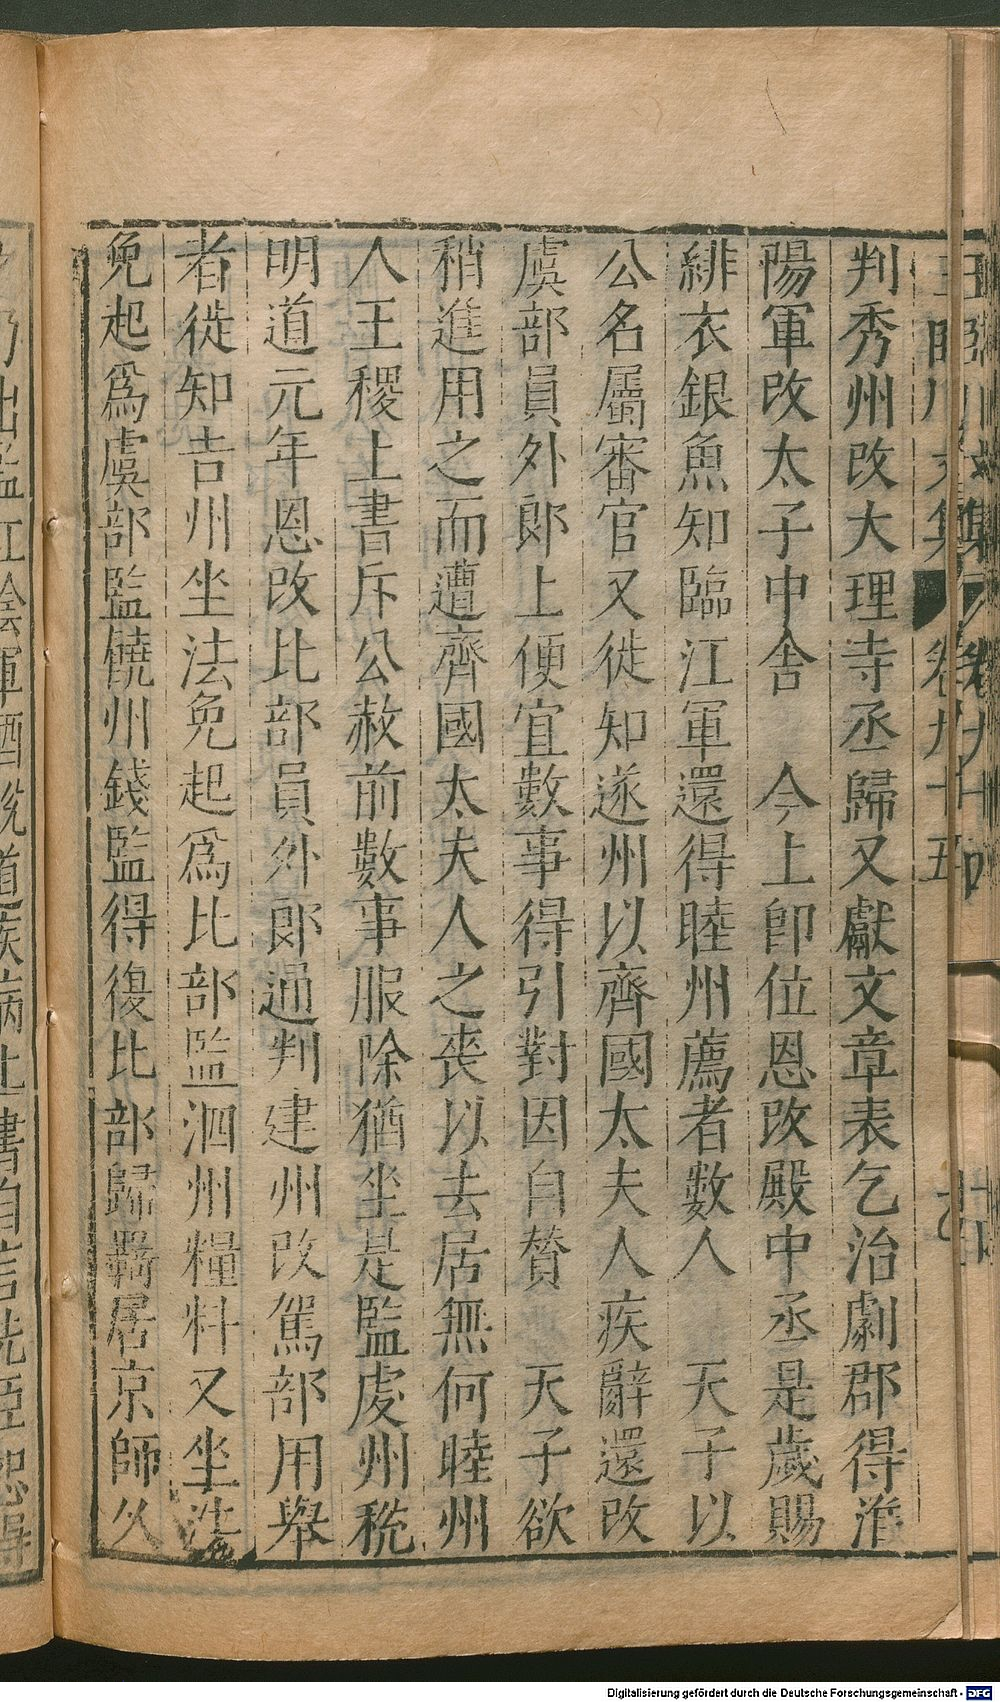 判秀州改大理寺丞歸又獻文章表乞治劇郡得淮
陽軍改太子中舍　今上卽位恩改殿中丞是歲賜
緋衣銀魚知臨江軍還得睦州薦者數人　天子以
公名屬審官又徙知遂州以齊國太夫人疾辭還改
虞部員外郎上便宜數事得引對因自贊　天子欲
稍進用之而遭齊國太夫人之喪以去居無何睦州
人王稷上書斥公赦前數事服除猶坐是監處州稅
明道元年恩改比部員外郎通判建州改駕部用舉
者徙知吉州坐法免起爲比部監泗州糧料又坐法
免起爲虞部監饒州錢監得復比部歸羇居京師久
之乃出監江陰軍酒稅道疾病上書自言
Digitalisierung gefördert durch die Deutsche Forschungsgemeinschaft - DFG